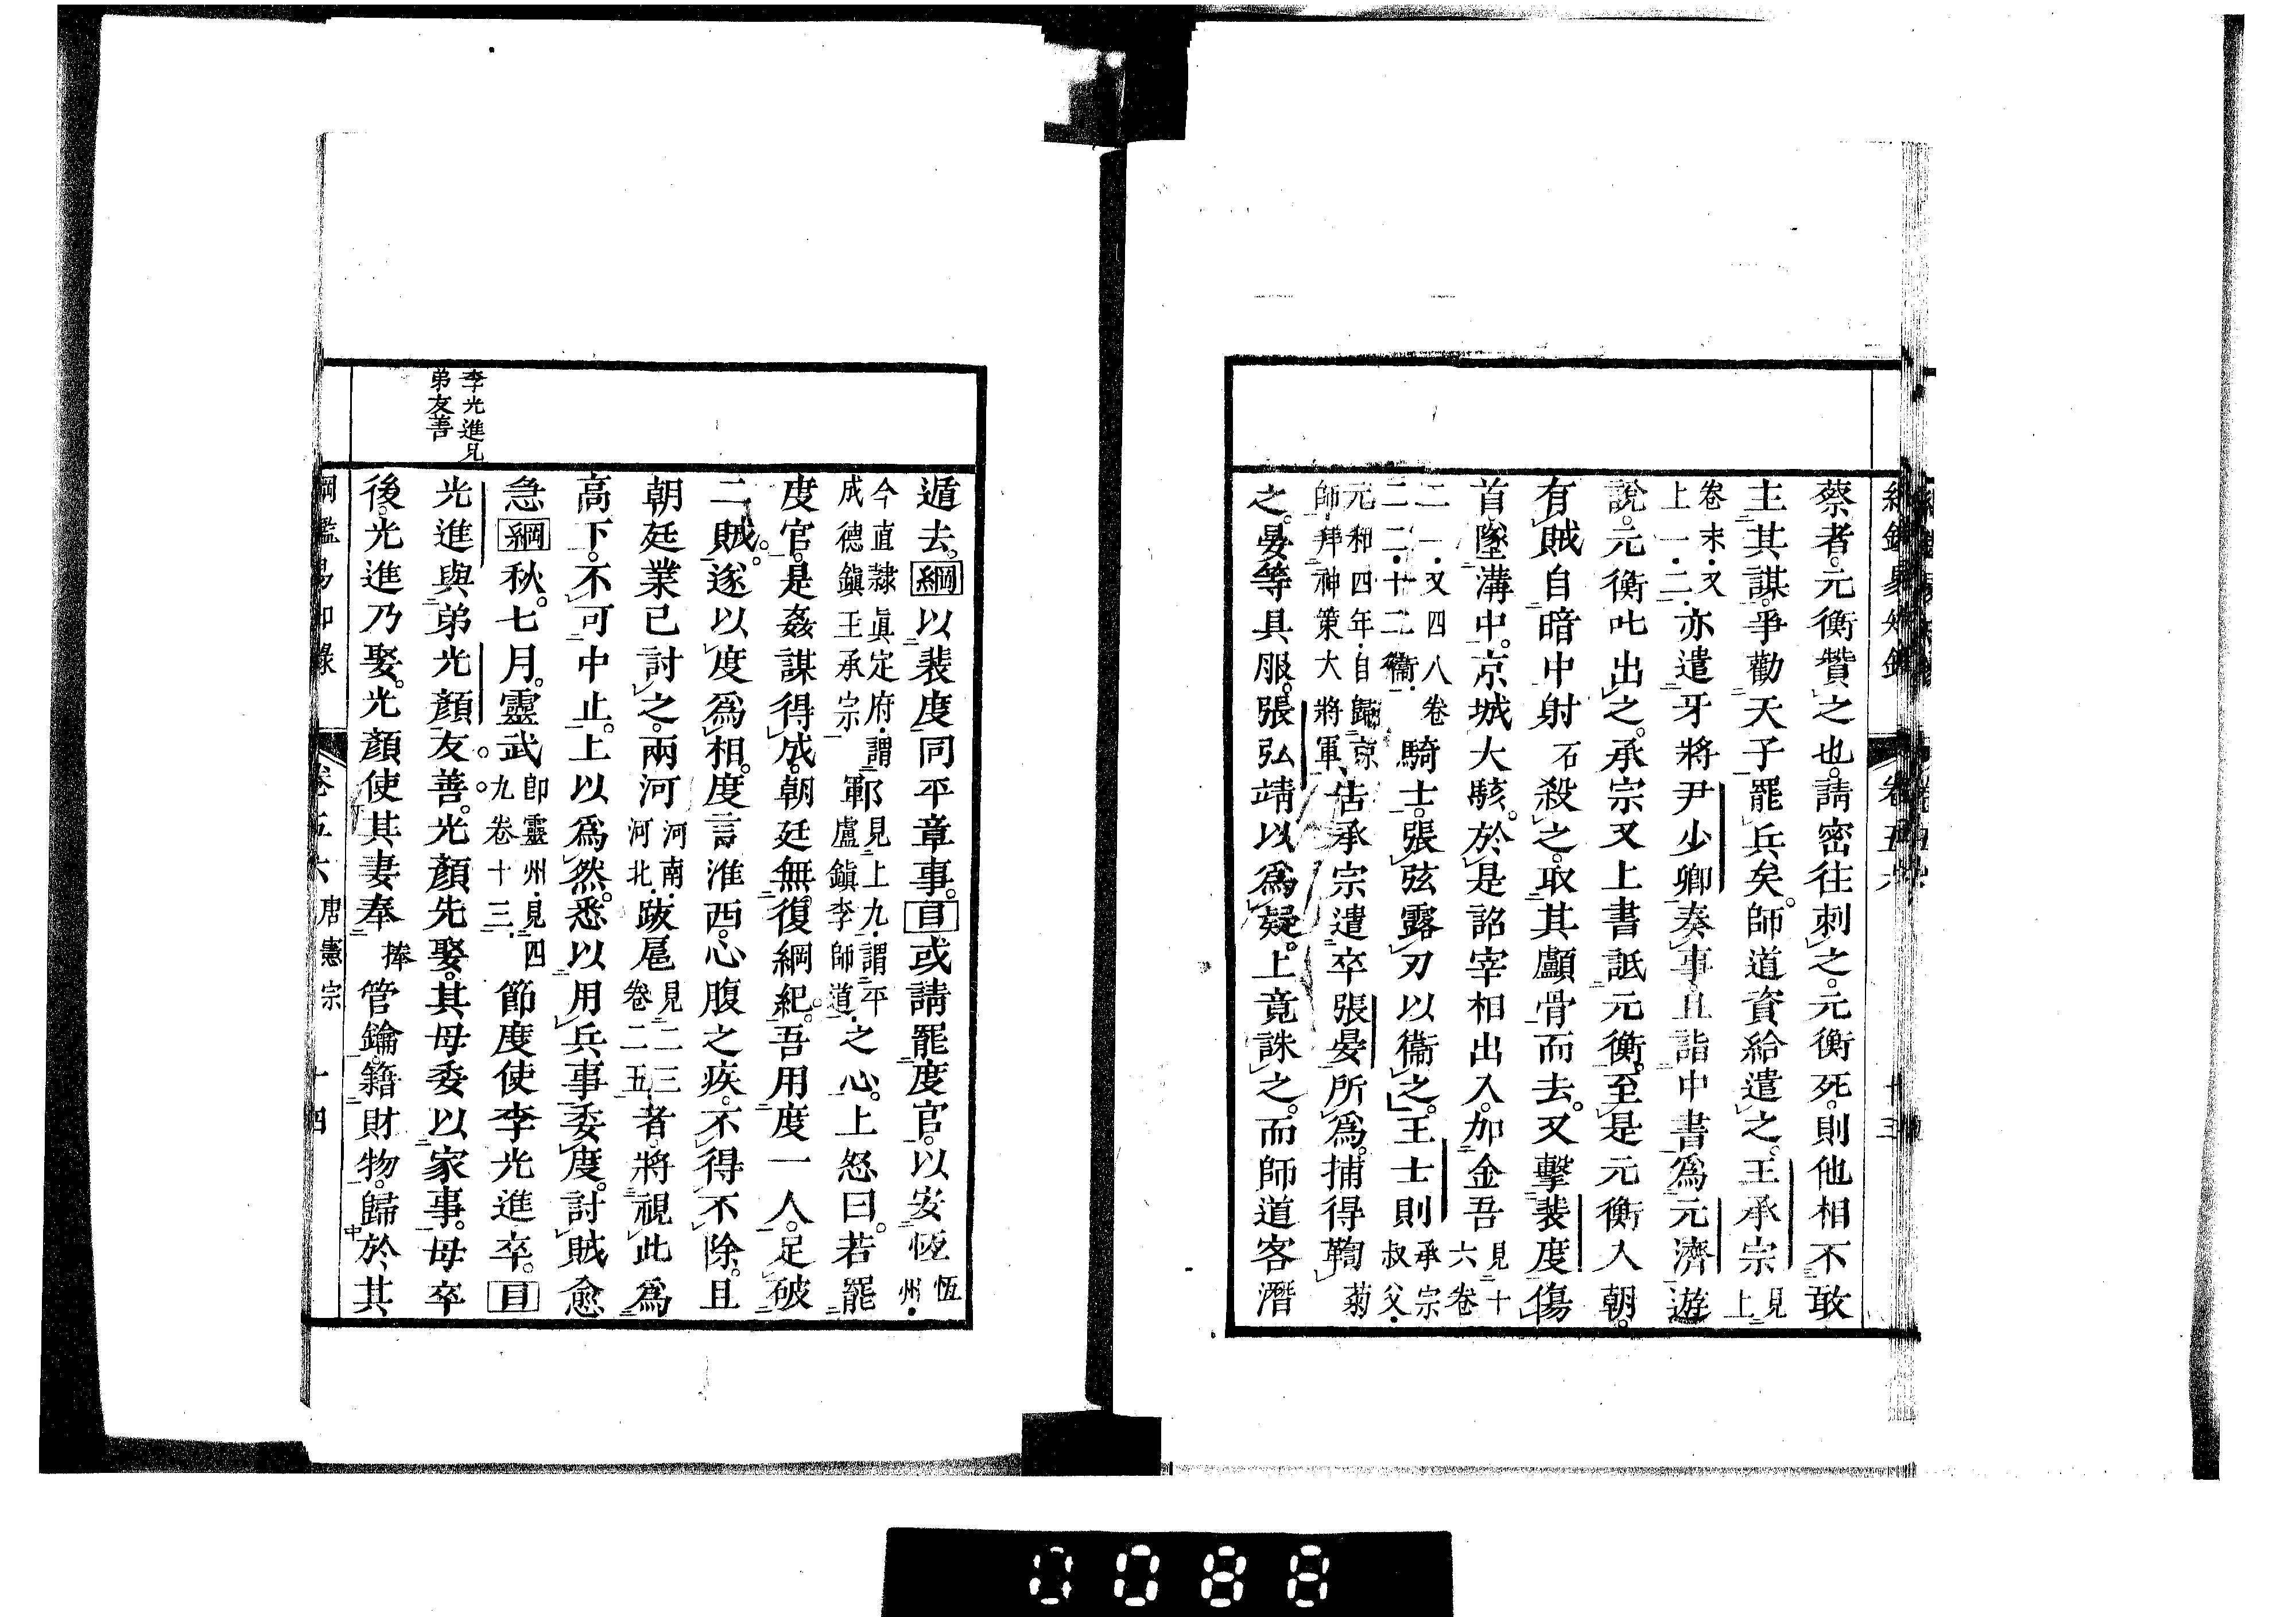 蔡者。元衡贊之也。請密往刺之。元衡死。則他相不敢
主其謀。爭勸天子罷兵矣。師道資給遣之。王承宗見上
卷末。又上一。二。亦遣牙將尹少卿奏事。且詣中書爲元濟遊
說。元衡叱出之。承宗又上書詆元衡。至是元衡入朝。
有賊自暗中射石殺之。取其顱骨而去。又擊裴度傷
首。墜溝中。京城大駭。於是詔宰相出入。加金吾見十六卷
二一。又四八卷二二。十二衞。騎士。張弦露刃以衞之。王士則承宗叔父。
元和四年。自歸京師。拜神策大將軍。告承宗遣卒張晏所爲。捕得鞫菊
之。晏等具服。張弘靖以爲疑。上竟誅之。而師道客潛
卷五六
十三
遁去。綱以裴度同平章事。目或請罷度官。以安恆恆州。
今直隸眞定府。謂成德鎭王承宗。鄆見上九。謂平盧鎭李師道。之心。上怒曰。若罷
度官。是姦謀得成。朝廷無復綱紀。吾用度一人。足破
二賊。遂以度爲相。度言淮西。心腹之疾。不得不除。且
朝廷業已討之。兩河河南。河北。跋扈見二三卷二五。者。將視此爲
高下。不可中止。上以爲然。悉以用兵事委度。討賊愈
急。綱秋。七月。靈武卽靈州。見四九卷十三。節度使李光進卒。目
李光進兄弟友善
光進與弟光顏友善。光顏先娶。其母委以家事。母卒
後。光進乃娶。光顏使其妻奉捧管鑰。籍財物。歸於其
綱鑑易知錄
卷五六
唐憲宗
十四
0088